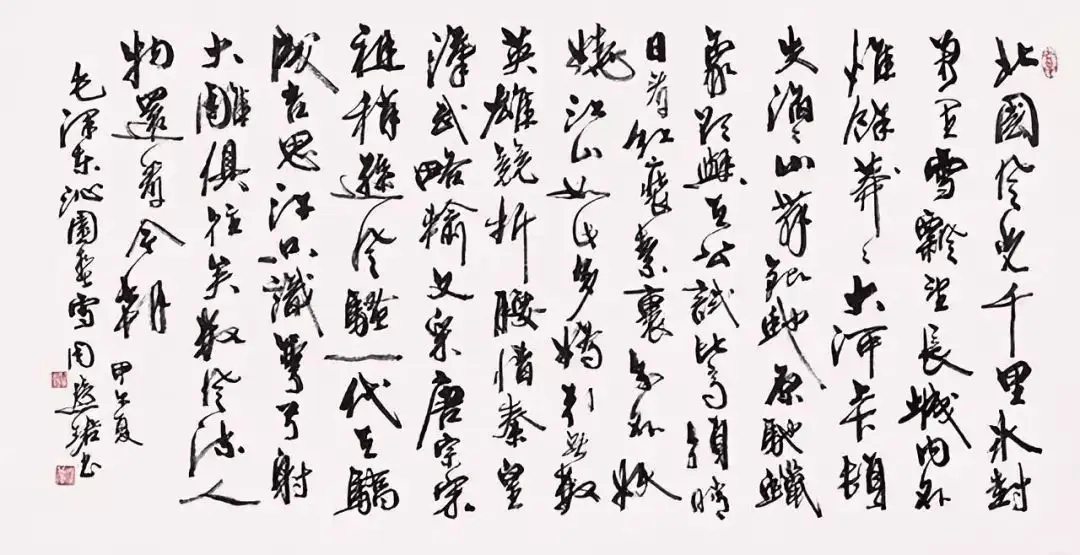 北國風光千里冰封
萬里雪飄望長城內外
惟餘莽々大河上下頓
失滔々山舞銀蛇原馳蠟
象欲與天公試比高須晴
日看紅裝素裹分外妖
嬈江山如此多嬌引無數
英雄競折腰惜秦皇
漢武略輸文采唐宗宋
祖稍遜風騷一代天驕
成吉思汗只識彎弓射
大雕俱往矣數風流人
物還看今朝
甲午夏
毛澤東沁園春雪周慧珺书